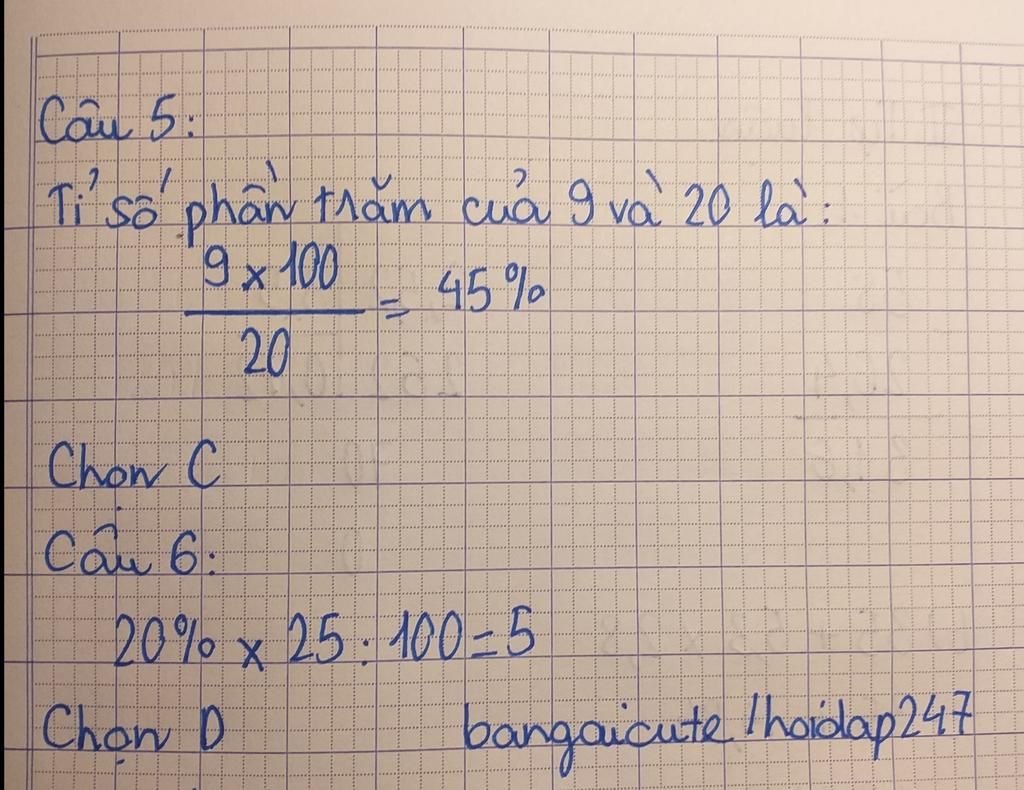 Câu 5:
Tỉ số phần trăm của 9 và 20 là:
9 x 100
20
= 45%
Chọn C
Câu 6:
20% x 25 : 100 = 5
Chọn D
bangaicute/hoidap247